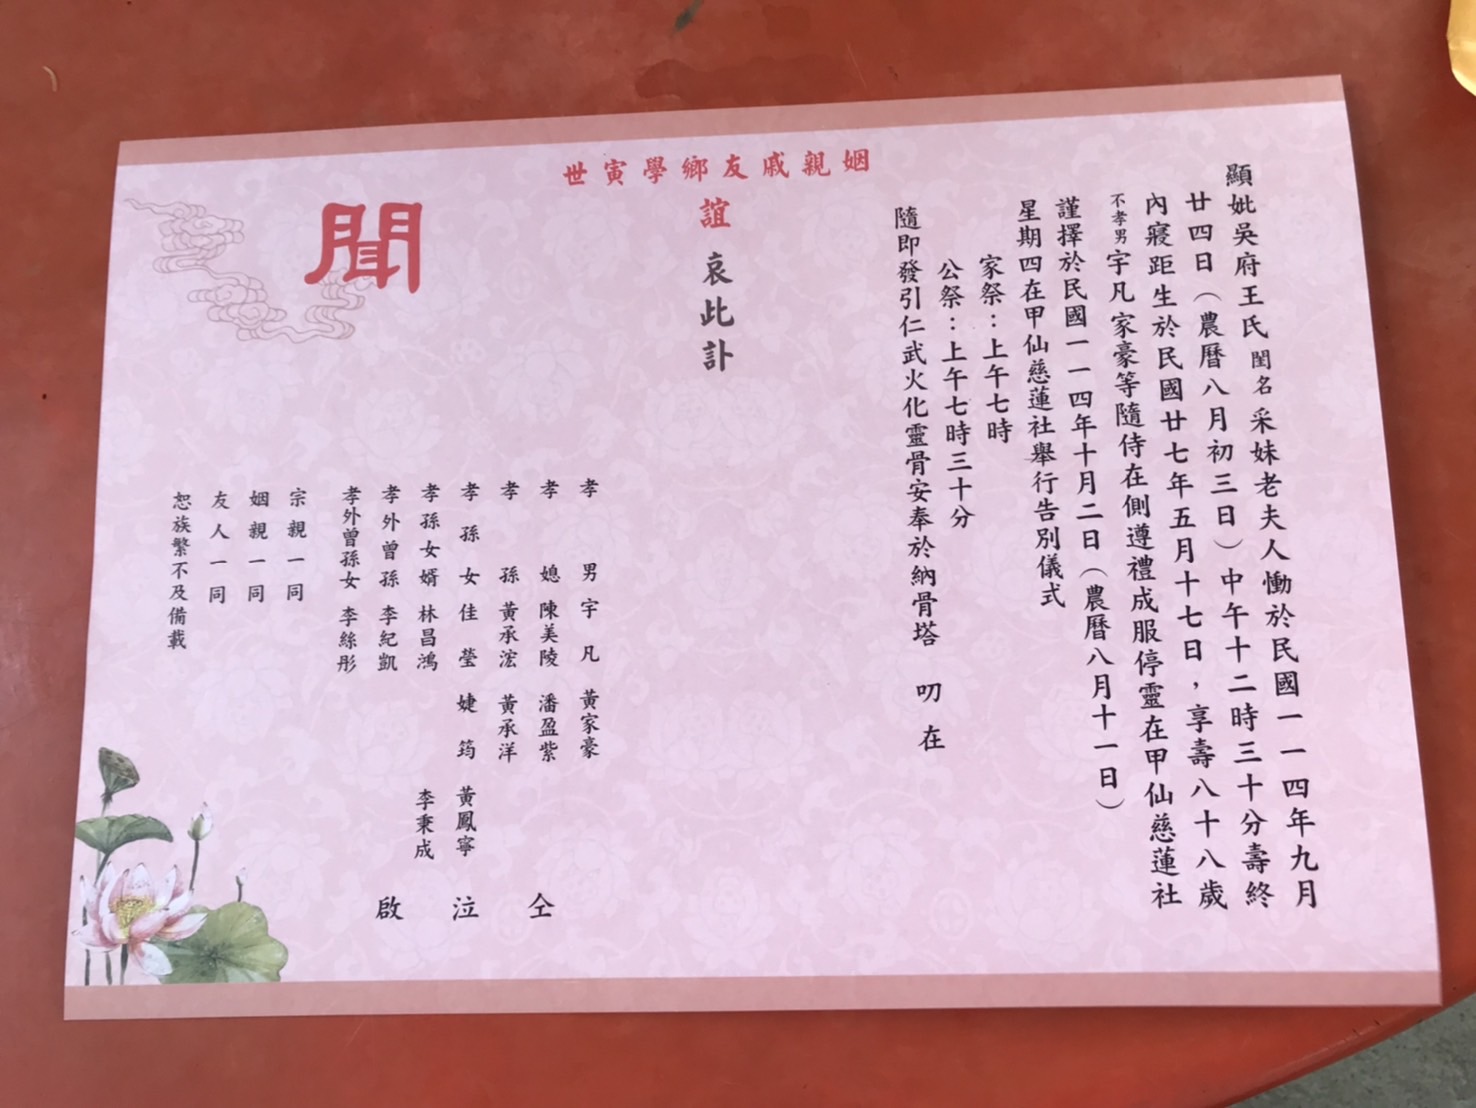 顯妣吳府王氏閨名采妹老夫人慟於民國一一四年九月
廿四日（農曆八月初三日）中午十二時三十分壽終
內寢距生於民國廿七年五月十七日，享壽八十八歲
不孝男宇凡家豪等隨侍在側遵禮成服停靈在甲仙慈蓮社
謹擇於民國一一四年十月二日（農曆八月十一日）
星期四在甲仙慈蓮社舉行告別儀式
家祭：上午七時
公祭：上午七時三十分
隨即發引仁武火化靈骨安奉於納骨塔 叨在
姻親戚友鄉學寅世
誼 哀此訃
聞
孝男 宇凡 黃家豪
孝媳 陳美陵 潘盈紫
孝孫 黃承浤 黃承洋
孝孫女 佳瑩 婕筠 黃鳳寧
孝孫女婿 林昌鴻 李秉成
孝外曾孫 李紀凱
孝外曾孫女 李絲彤
仝
泣
啟
宗親一同
姻親一同
友人一同
恕族繁不及備載